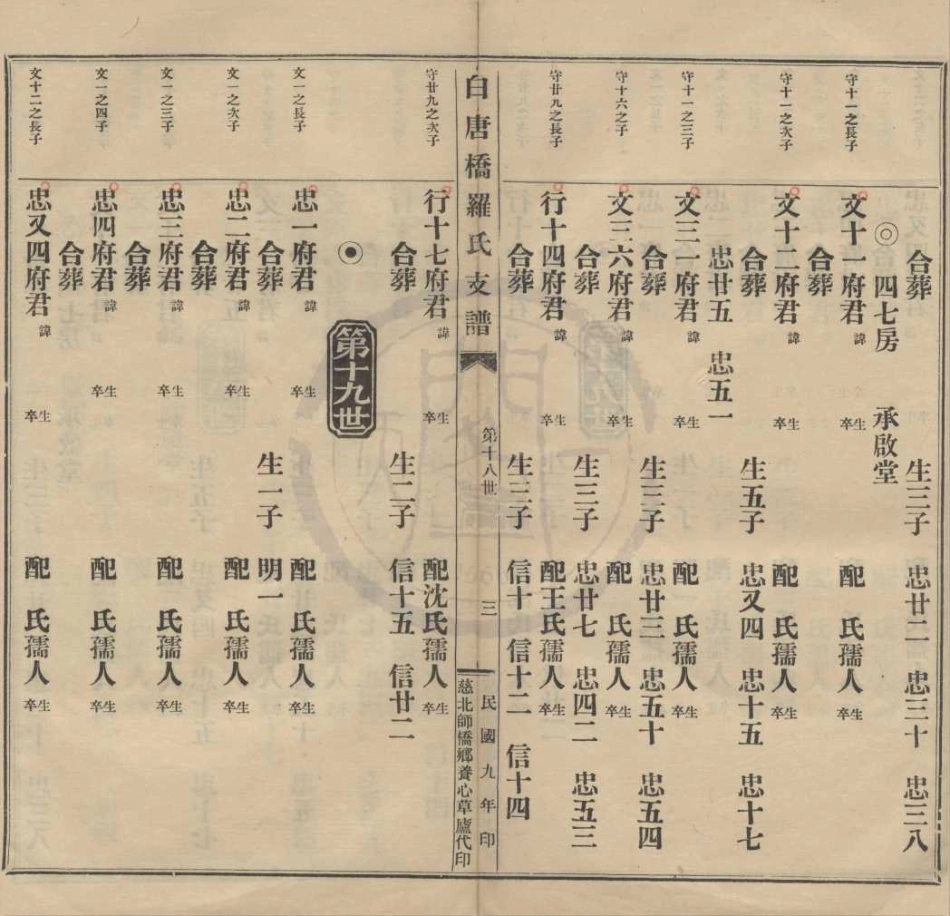 合葬 生三子 忠廿二 忠三十 忠三八
◎四七房 承啟堂
守十一之長子 文十一府君 諱 生卒 配 氏孺人 生卒
合葬
守十一之次子 文十二府君 諱 生卒 配 氏孺人 生卒
合葬 生五子 忠又四 忠十五 忠十七
忠廿五 忠五一
守十一之三子 文三一府君 諱 生卒 配 氏孺人 生卒
合葬 生三子 忠廿三 忠五十 忠五四
守十六之子 文三六府君 諱 生卒 配 氏孺人 生卒
合葬 生三子 忠廿七 忠四二 忠五三
守廿九之長子 行十四府君 諱 生卒 配王氏孺人 生卒
合葬 生三子 信十 信十二 信十四
白唐橋羅氏支譜 第十八世 三 民國九年印
慈北師橋鄉養心草廬代印
守廿九之次子 行十七府君 諱 生卒 配沈氏孺人 生卒
合葬 生二子 信十五 信廿二
第十九世
文一之長子 忠一府君 諱 生卒 配 氏孺人 生卒
合葬 生一子 明一
文一之次子 忠二府君 諱 生卒 配 氏孺人 生卒
合葬
文一之三子 忠三府君 諱 生卒 配 氏孺人 生卒
合葬
文一之四子 忠四府君 諱 生卒 配 氏孺人 生卒
合葬
文十二之長子 忠又四府君 諱 生卒 配 氏孺人 生卒